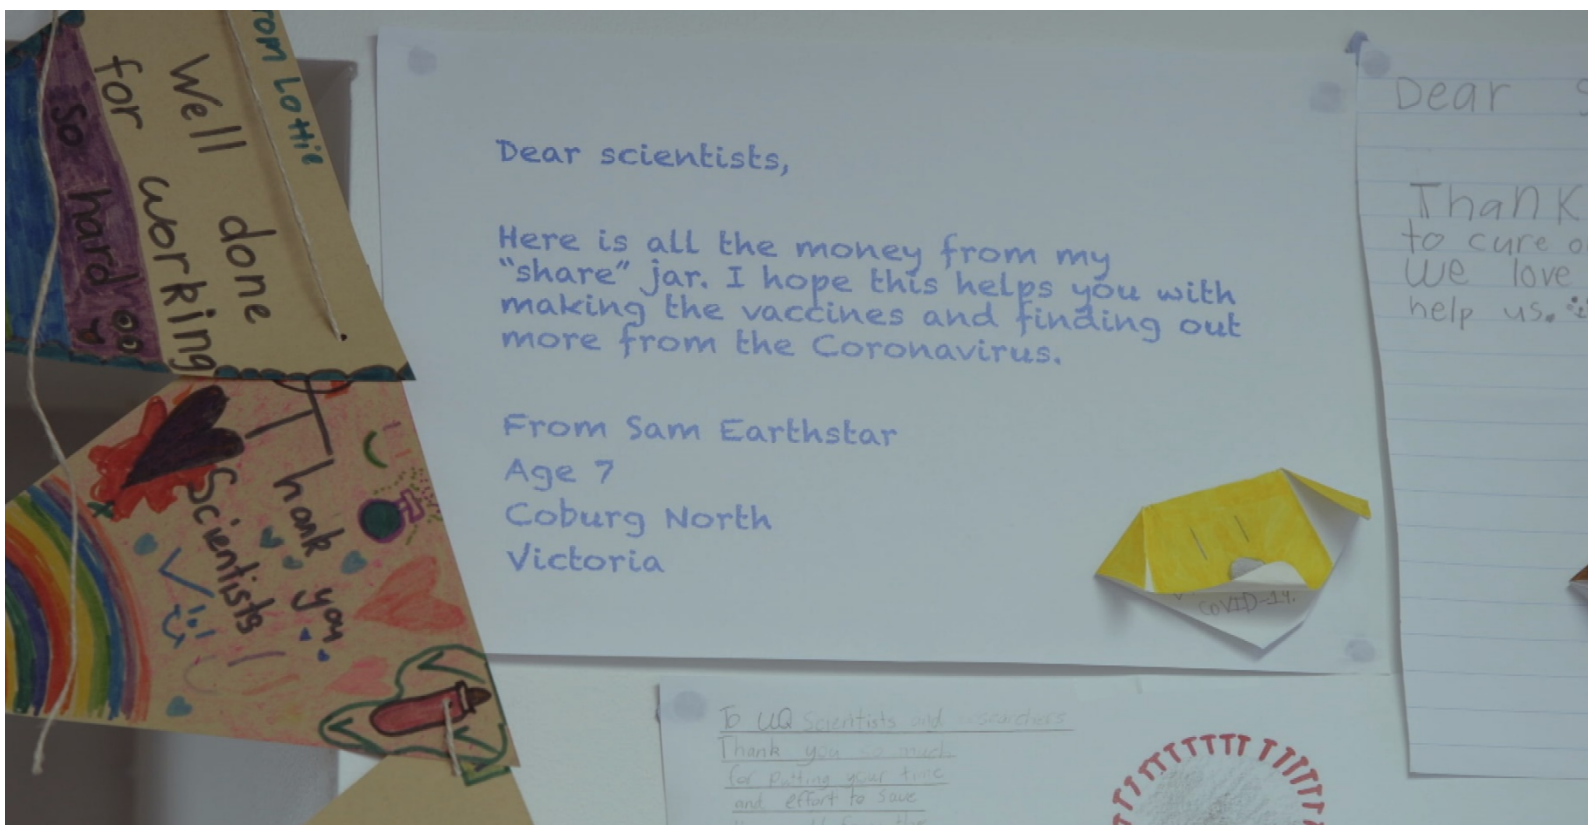 From Lottie
Well done
for working
so hard
Thank you
Scientists
Dear scientists,
Here is all the money from my
"share" jar. I hope this helps you with
making the vaccines and finding out
more from the Coronavirus.
From Sam Earthstar
Age 7
Coburg North
Victoria
COVID-19.
Dear
Thank
to cure
we love
help us.
To UQ Scientists and researchers
Thank you so much
for putting your time
and effort to save